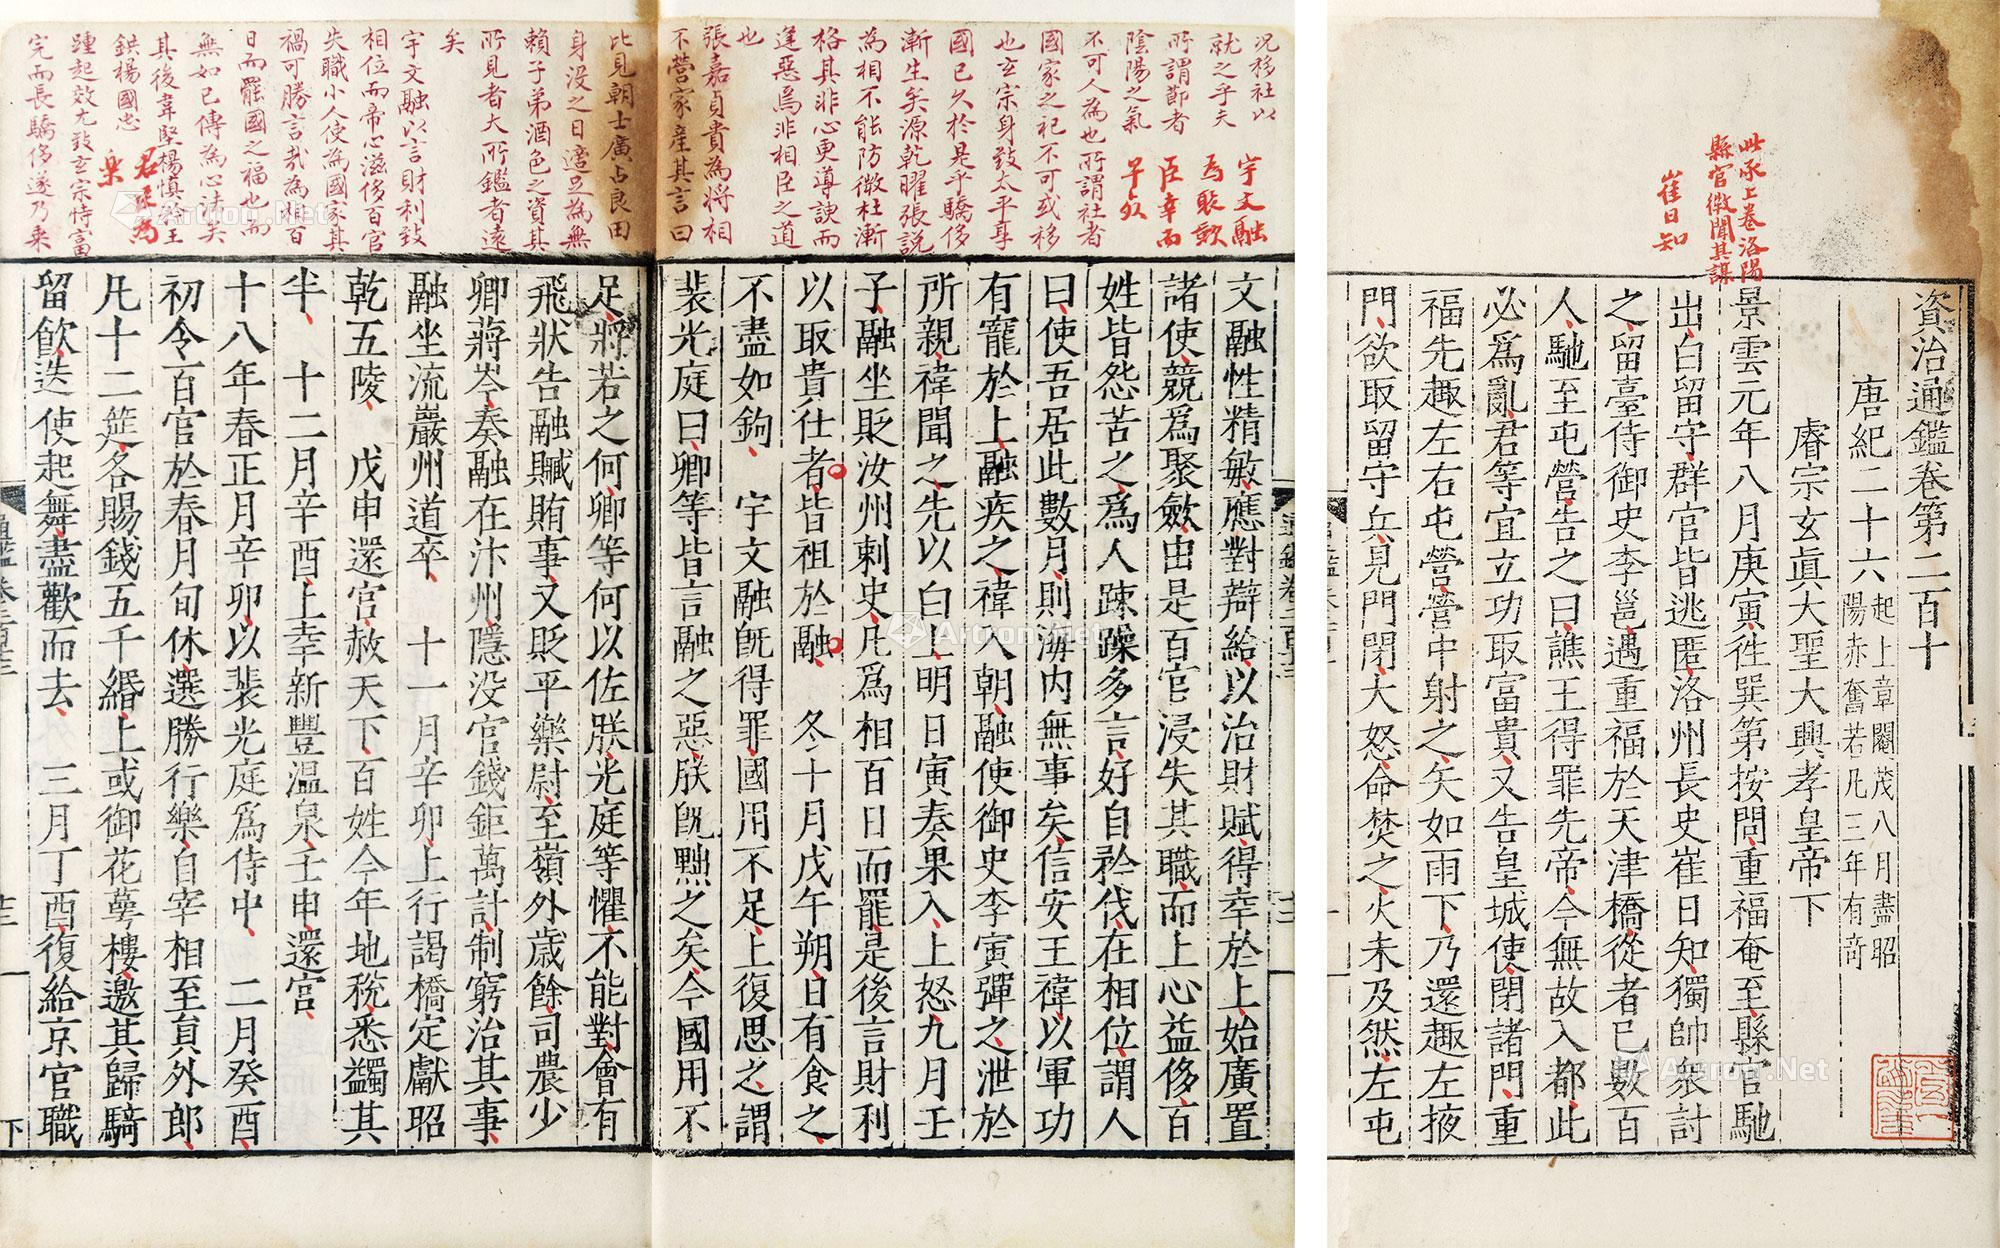 資治通鑑卷第二百十
唐紀二十六起上章閹茂八月盡昭陽赤奮若凡三年有奇
睿宗玄眞大聖大興孝皇帝下
景雲元年八月庚寅徃巽第按問重福奄至縣官馳
出白留守群官皆逃匿洛州長史崔日知獨帥衆討
之留臺侍御史李邕遇重福於天津橋從者已數百
人馳至屯營告之曰譙王得罪先帝今無故入都此
必爲亂君等宜立功取富貴又告皇城使閉諸門重
福先趣左右屯營營中射之矢如雨下乃還趣左掖
門欲取留守兵見門閉大怒命焚之火未及然左屯
此承上卷洛陽
縣官微聞其謀
崔日知
文融性精敏應對辯給以治財賦得幸於上始廣置
諸使競爲聚斂由是百官浸失其職而上心益侈百
姓皆怨苦之爲人踈躁多言好自矜伐在相位謂人
曰使吾居此數月則海內無事矣信安王禕以軍功
有寵於上融疾之禕入朝融使御史李寅彈之泄於
所親禕聞之先以白上明日寅奏果入上怒九月壬
子融坐貶汝州刺史凡爲相百日而罷是後言財利
以取貴仕者皆祖於融　冬十月戊午朔日有食之
不盡如鉤　宇文融旣得罪國用不足上復思之謂
裴光庭曰卿等皆言融之惡朕旣黜之矣今國用不
足將若之何卿等何以佐朕光庭等懼不能對會有
飛狀告融贓賄事又貶平樂尉至嶺外歲餘司農少
卿蔣岑奏融在汴州隱没官錢鉅萬計制窮治其事
融坐流巖州道卒　十一月辛卯上行謁橋定獻昭
乾五陵　戊申還宮赦天下百姓今年地稅悉蠲其
半　十二月辛酉上幸新豐温泉壬申還宮
十八年春正月辛卯以裴光庭爲侍中　二月癸酉
初令百官於春月旬休選勝行樂自宰相至貟外郎
凡十二筵各賜錢五千緡上或御花萼樓邀其歸騎
留飮迭使起舞盡歡而去　三月丁酉復給京官職
況移社以
就之乎夫
所謂節者
陰陽之氣
不可人為也所謂社者
國家之祀不可或移
也玄宗身致太平享
國已久於是乎驕侈
漸生矣源乾曜張說
為相不能防微杜漸
格其非心更導諛而
逢惡焉非相臣之道
也
宇文融
為聚斂
臣幸而
早敗
張嘉貞貴為將相
不營家產其言曰
比見朝士廣占良田
身没之日適足為無
賴子弟酒色之資其
所見者大所鑑者遠
矣
宇文融以言財利致
相位而帝心滋侈百官
失職小人使為國家其
禍可勝言哉為相百
日而罷國之福也而
無如已傳為心法矣
其後韋堅楊慎矜王
鉷楊國忠
踵起效尤致玄宗恃富
完而長驕侈遂乃乘